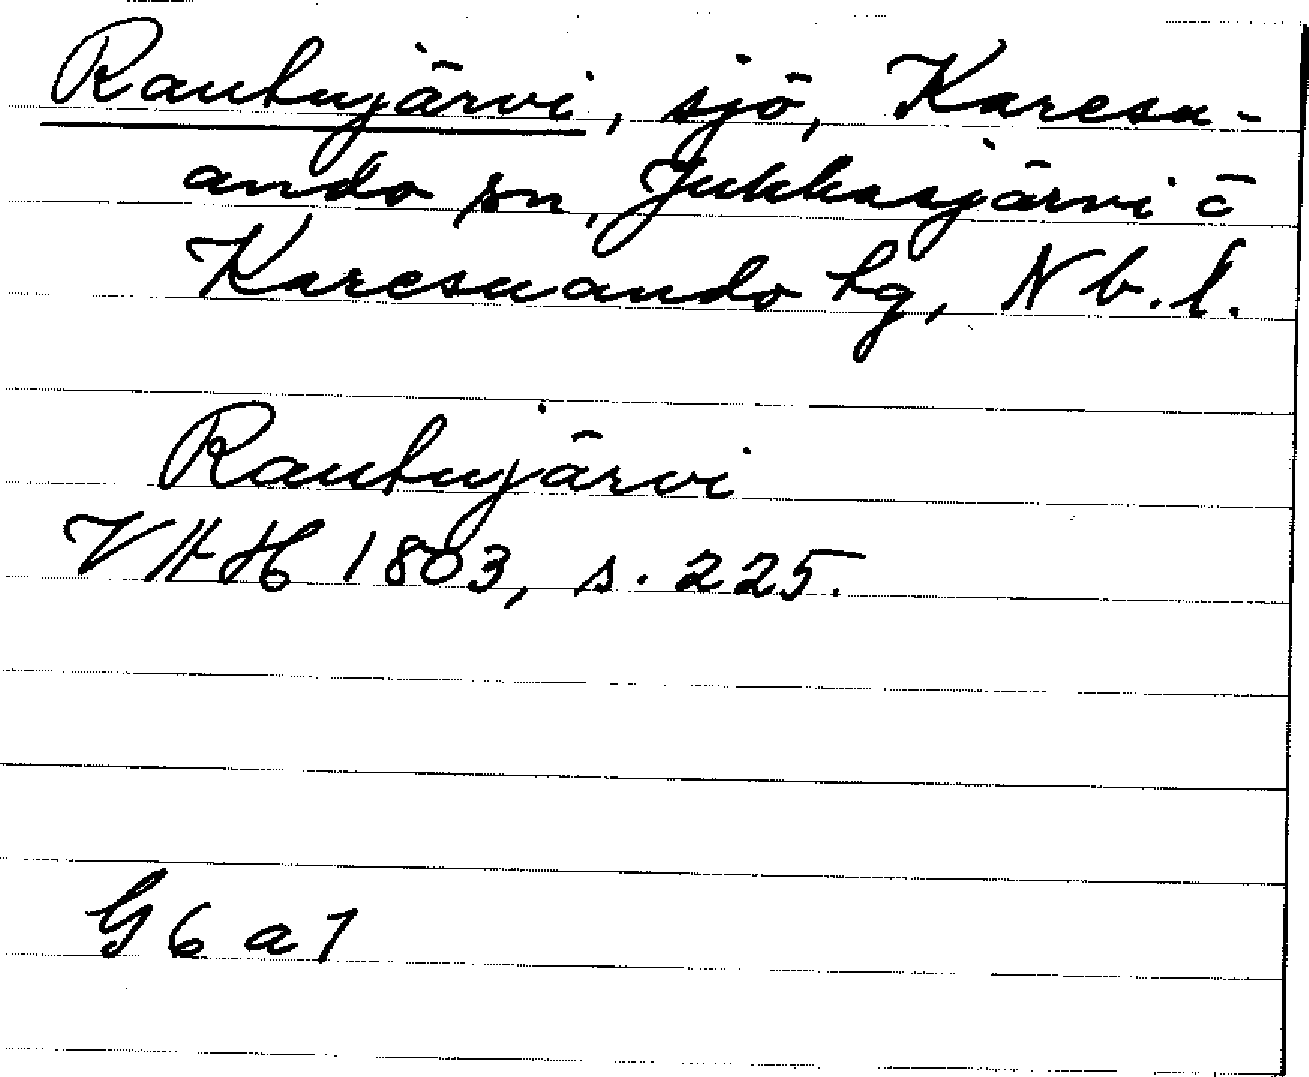 Rautujärvi, sjö, Karesu-
ando sn, Jukkasjärvi o
Karesuando lg, Nb. l.
Rautujärvi
VHAH 1803, s. 225.
G 6 a 7